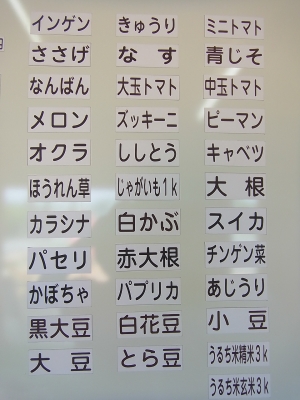 インゲン きゅうり ミニトマト
ささげ なす 青じそ
なんばん 大玉トマト 中玉トマト
メロン ズッキーニ ピーマン
オクラ ししとう キャベツ
ほうれん草 じゃがいも1k 大根
カラシナ 白かぶ スイカ
パセリ 赤大根 チンゲン菜
かぼちゃ パプリカ あじうり
黒大豆 白花豆 小豆
大豆 とら豆 うるち米精米3k
うるち米玄米3k